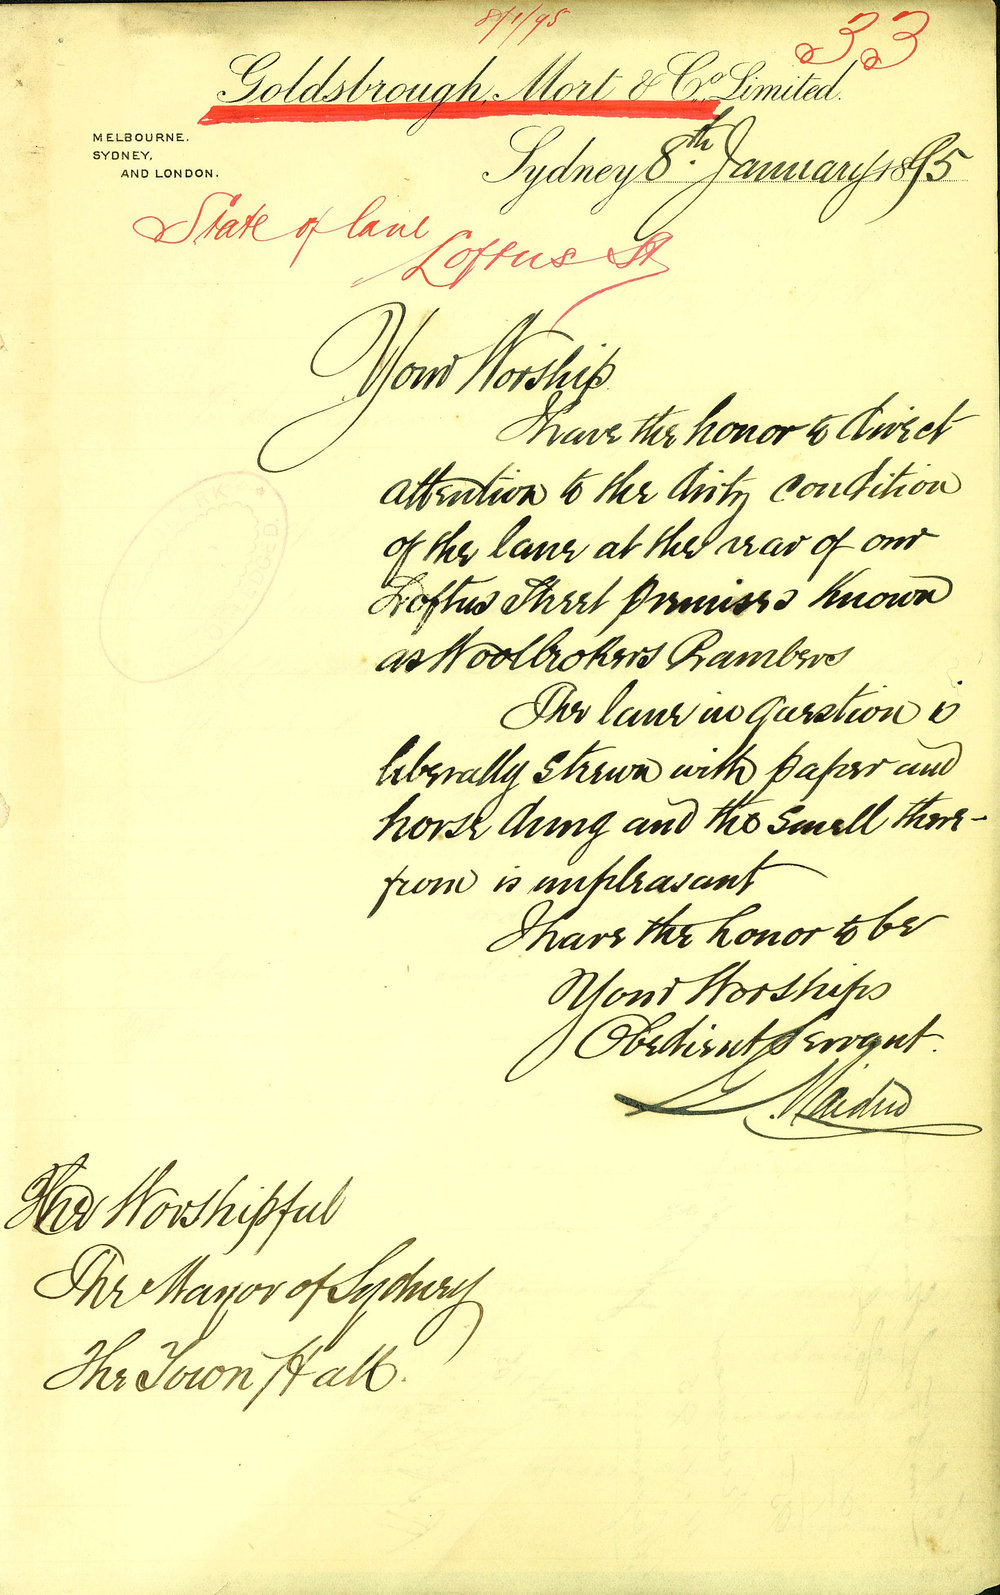 8/1/95
33
Goldsbrough, Mort & Co. Limited.
MELBOURNE.
SYDNEY,
AND LONDON.
Sydney 8th January 1895
State of lane
Loftus St
Your Worship
I have the honor to direct
attention to the dirty condition
of the lane at the rear of our
Loftus Street premises known
as Woolbrokers Chambers
The lane in question is
liberally strewn with paper and
horse dung and the smell there-
from is unpleasant
I have the honor to be
Your Worships
Obedient Servant.
G. Maiden
The Worshipful
The Mayor of Sydney
The Town Hall.